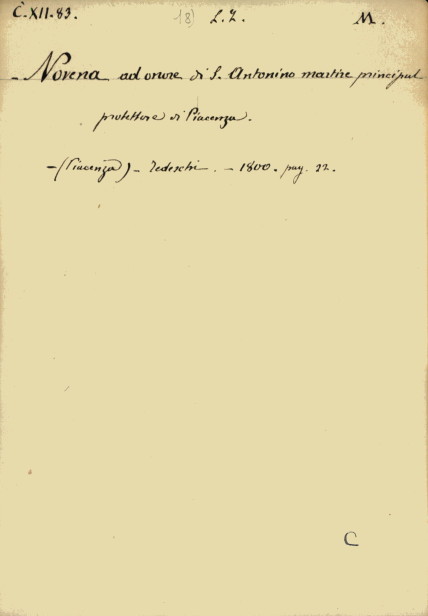 C.XII.83. (8) L.Z. M.
- Novena ad onore di S. Antonino martire principal
protettore di Piacenza.
- (Piacenza) - Tedeschi. - 1800. pag. 22.
C